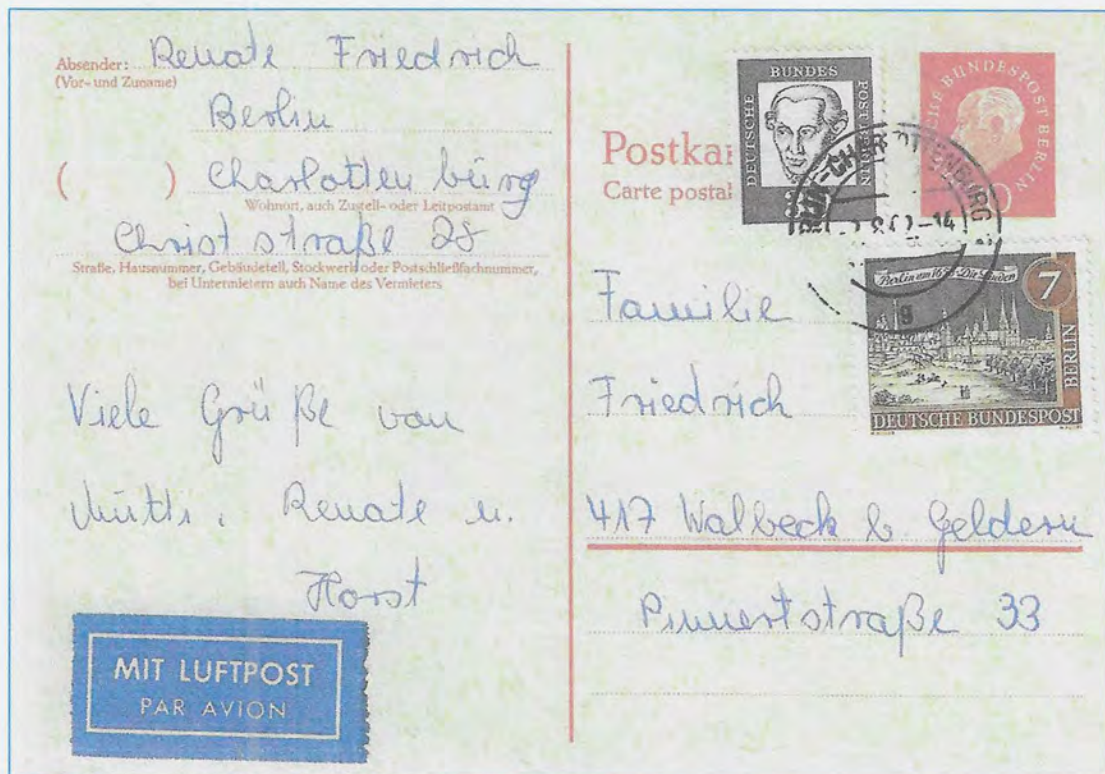 Absender: Renate Friedrich
(Vor- und Zuname)
Berlin
( ) Charlottenburg
Wohnort, auch Zustell- oder Leitpostamt
Christstraße 28
Straße, Hausnummer, Gebäudeteil, Stockwerk oder Postschließfachnummer,
bei Untermietern auch Name des Vermieters
Viele Grüße von
Mutti, Renate u.
Horst
MIT LUFTPOST
PAR AVION
Postkar
Carte postal
DEUTSCHE BUNDESPOST BERLIN
CHE BUNDESPOST BERLIN
LIN-CHARLOTTENBURG
-14
g
Berlin um 1650 Die Linden
7
BERLIN
DEUTSCHE BUNDESPOST
Familie
Friedrich
417 Walbeck b. Geldern
Pinnertstraße 33